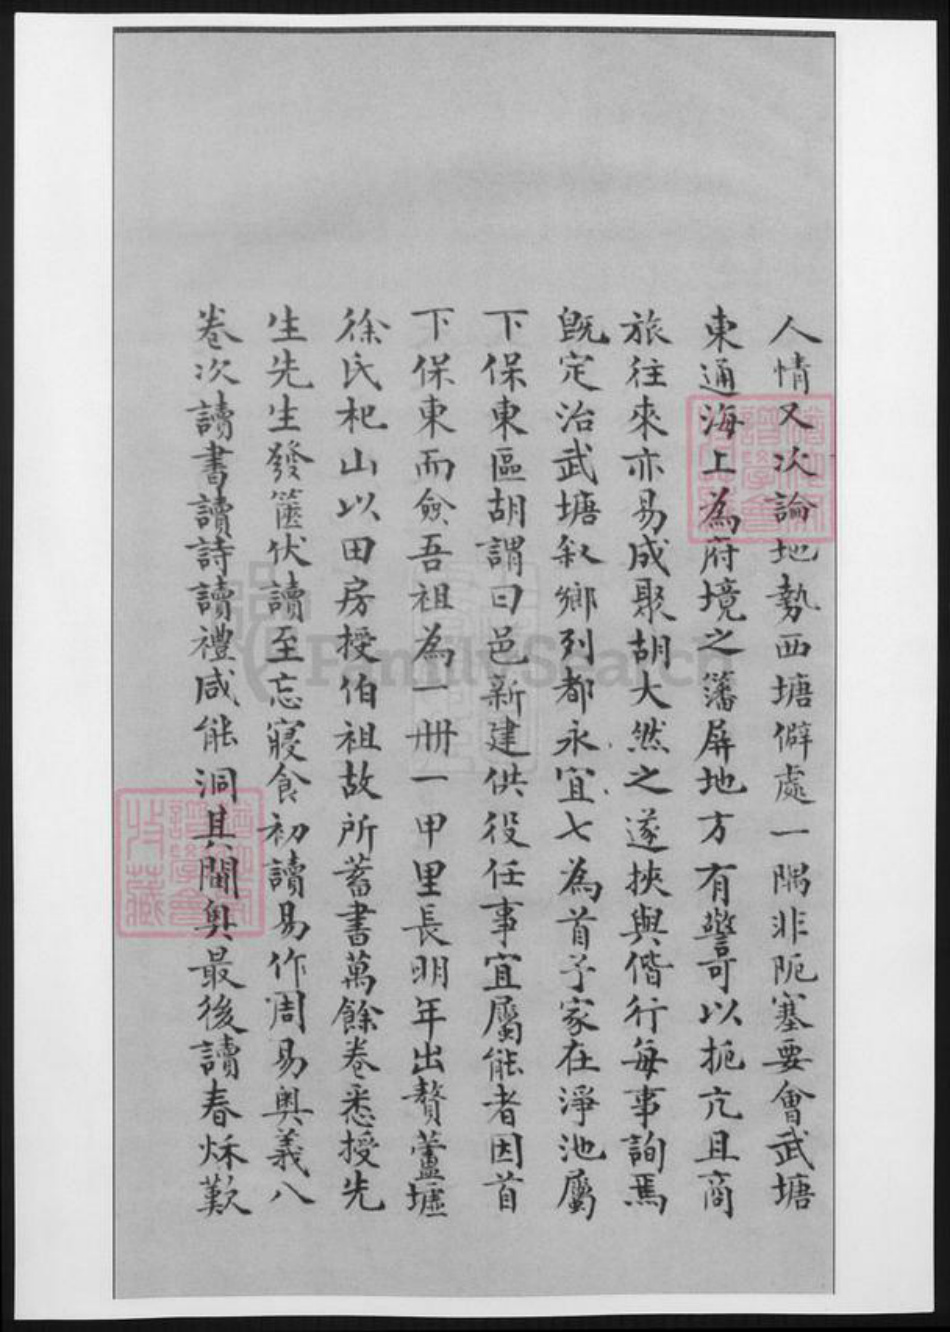 人情又次論地勢西塘僻處一隅非阨塞要會武塘
東通海上為府境之籓屏地方有警可以扼亢且商
旅往來亦易成聚胡大然之遂挾與偕行每事詢焉
既定治武塘叙鄉列都永宜七為首予家在淨池屬
下保東區胡謂曰邑新建供役任事宜屬能者因首
下保東而僉吾祖為一冊一甲里長明年出贅蘆墟
徐氏杞山以田房授伯祖故所蓄書萬餘卷悉授先
生先生發篋伏讀至忘寢食初讀易作周易奥義八
卷次讀書讀詩讀禮咸能洞其閫奥最後讀春秌歎
FamilySearch